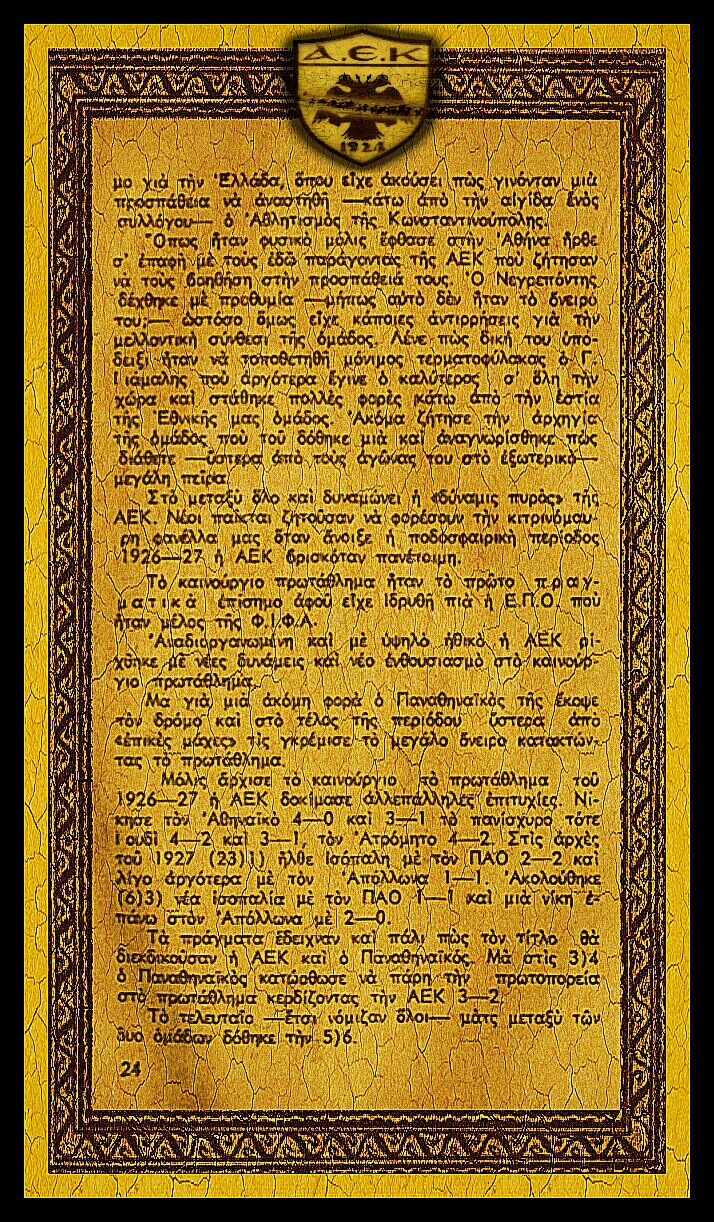 Α.Ε.Κ
1924
μο γιὰ τὴν Ἑλλάδα, ὅπου εἶχε ἀκούσει πὼς γινόνταν μιὰ
προσπάθεια νὰ ἀναστηθῆ —κάτω ἀπὸ τὴν αἰγίδα ἑνὸς
συλλόγου— ὁ Ἀθλητισμὸς τῆς Κωνσταντινούπολης.
Ὅπως ἦταν φυσικὸ μόλις ἔφθασε στὴν Ἀθήνα ἦρθε
σ' ἐπαφὴ μὲ τοὺς ἐδῶ παράγοντας τῆς ΑΕΚ ποὺ ζήτησαν
νὰ τοὺς βοηθήση στὴν προσπάθειά τους. Ὁ Νεγρεπόντης
δέχθηκε μὲ προθυμία —μήπως αὐτὸ δὲν ἦταν τὸ ὄνειρό
του;— ὡστόσο ὅμως εἶχε κάποιες ἀντιρρήσεις γιὰ τὴν
μελλοντικὴ σύνθεσι τῆς ὁμάδος. Λένε πὼς δική του ὑπό-
δειξι ἦταν νὰ τοποθετηθῆ μόνιμος τερματοφύλακας ὁ Γ.
Γιαμαλης ποὺ ἀργότερα ἔγινε ὁ καλύτερος σ' ὅλη τὴν
χώρα καὶ στάθηκε πολλὲς φορὲς κάτω ἀπὸ τὴν ἑστία
τῆς Ἐθνικῆς μας ὁμάδος. Ἀκόμα ζήτησε τὴν ἀρχηγία
τῆς ὁμάδος ποὺ τοῦ δόθηκε μιὰ καὶ ἀναγνωρίσθηκε πὼς
διάθετε —ὕστερα ἀπὸ τοὺς ἀγῶνας του στὸ ἐξωτερικὸ—
μεγάλη πεῖρα.
Στὸ μεταξὺ ὅλο καὶ δυναμώνει ἡ «δύναμις πυρὸς» τῆς
ΑΕΚ. Νέοι παῖκται ζητοῦσαν νὰ φορέσουν τὴν κιτρινόμαυ-
ρη φανέλλα μας ὅταν ἄνοιξε ἡ ποδοσφαιρικὴ περίοδος
1926—27 ἡ ΑΕΚ βρισκόταν πανέτοιμη.
Τὸ καινούργιο πρωτάθλημα ἦταν τὸ πρῶτο πραγ-
ματικὰ ἐπίσημο ἀφοῦ εἶχε ἱδρυθῆ πιὰ ἡ Ε.Π.Ο. ποὺ
ἦταν μέλος τῆς Φ.Ι.Φ.Α.
Ἀναδιοργανωμένη καὶ μὲ ὑψηλὸ ἠθικὸ ἡ ΑΕΚ ρί-
χθηκε μὲ νέες δυνάμεις καὶ νέο ἐνθουσιασμὸ στὸ καινούρ-
γιο πρωτάθλημα.
Μὰ γιὰ μιὰ ἀκόμη φορὰ ὁ Παναθηναϊκὸς τῆς ἔκοψε
τὸν δρόμο καὶ στὸ τέλος τῆς περιόδου ὕστερα ἀπὸ
«ἐπικὲς μάχες» τὶς γκρέμισε τὸ μεγάλο ὄνειρο κατακτών-
τας τὸ πρωτάθλημα.
Μόλις ἄρχισε τὸ καινούργιο τὸ πρωτάθλημα τοῦ
1926—27 ἡ ΑΕΚ δοκίμασε ἀλλεπάλληλες ἐπιτυχίες. Νί-
κησε τὸν Ἀθηναϊκὸ 4—0 καὶ 3—1 τὸ πανίσχυρο τότε
Γουδὶ 4—2 καὶ 3—1, τὸν Ἀτρόμητο 4—2. Στὶς ἀρχὲς
τοῦ 1927 (23)1) ἦλθε ἰσόπαλη μὲ τὸν ΠΑΟ 2—2 καὶ
λίγο ἀργότερα μὲ τὸν Ἀπόλλωνα 1—1. Ἀκολούθηκε
(6)3) νέα ἰσοπαλία μὲ τὸν ΠΑΟ 1—1 καὶ μιὰ νίκη ἐ-
πάνω στὸν Ἀπόλλωνα μὲ 2—0.
Τὰ πράγματα ἔδειχναν καὶ πάλι πὼς τὸν τίτλο θὰ
διεκδικοῦσαν ἡ ΑΕΚ καὶ ὁ Παναθηναϊκός. Μὰ στὶς 3)4
ὁ Παναθηναϊκὸς κατώρθωσε νὰ πάρη τὴν πρωτοπορεία
στὸ πρωτάθλημα κερδίζοντας τὴν ΑΕΚ 3—2.
Τὸ τελευταῖο —ἔτσι νόμιζαν ὅλοι— μὰτς μεταξὺ τῶν
δύο ὁμάδων δόθηκε τὴν 5)6.
24